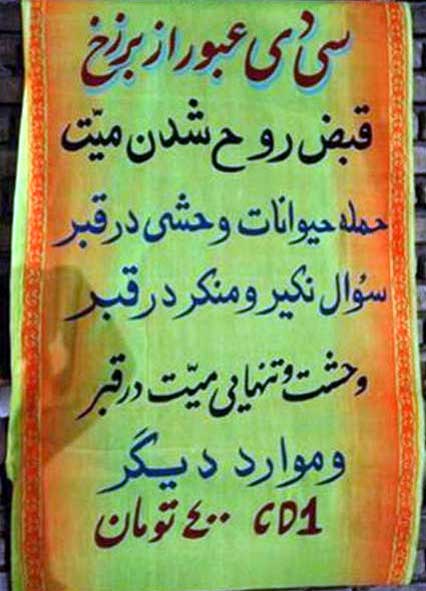 سی دی عبور از برزخ
قبض روح شدن میّت
حمله حیوانات وحشی در قبر
سؤال نکیر و منکر در قبر
وحشت و تنهایی میّت در قبر
و موارد دیگر
CD1 ۴۰۰ تومان